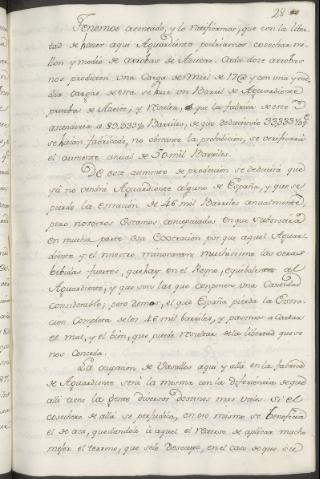 28
Tenemos asentado, y lo ratificamos, que con la liber-
tad de hacer aqui Aguardiente podriamos cosechar mi-
llon y medio de arrobas de Azucar. Cada doce arrobas
nos producen una Carga de Miel de 17@ y con una y
Cargas de esta se hace un Barril de Aguardiente
prueba de Aceite, y resulta, que la fabrica de este
ascenderia à 83,333⅓ Barriles, de que deduciendo 33333⅓ q.e
se hacen fabricado, no obstante la prohibicion, se verificaria
el aumento anual de 50 mil Barriles.
De este aumento de produccion se deduciria que
ya no vendrà Aguardiente alguno de España, y que se
pierde la extraccion de 46 mil Barriles anualmente,
pero nosotros estamos conceptuados en que subsistirà
en mucha parte esa extraccion por que aquel Aguar-
diente y el nuestro minorarán muchisimo las otras
bebidas fuertes, que hay en el Reyno, equivalentes al
Aguardiente, y que son las que componen una Cantidad
considerable; pero demos, el que España pierda la Extrac-
cion Completa de los 46 mil barriles, y pasemos a Cotejar
el mal, y el bien, que puede resultar de la libertad que se
nos Conceda.
La ocupacion de Vasallos aqui y alla en la fabrica
de Aguardiente será la misma con la diferencia de que
allà tiene la gente diversos destinos mas utiles. Si el
cosechero de alla se perjudica, en eso mismo se beneficia
el de acà, quedandole à aquel el recurso de aplicar mucho
mejor el terreno, que solo desocupa, en el caso de que sie